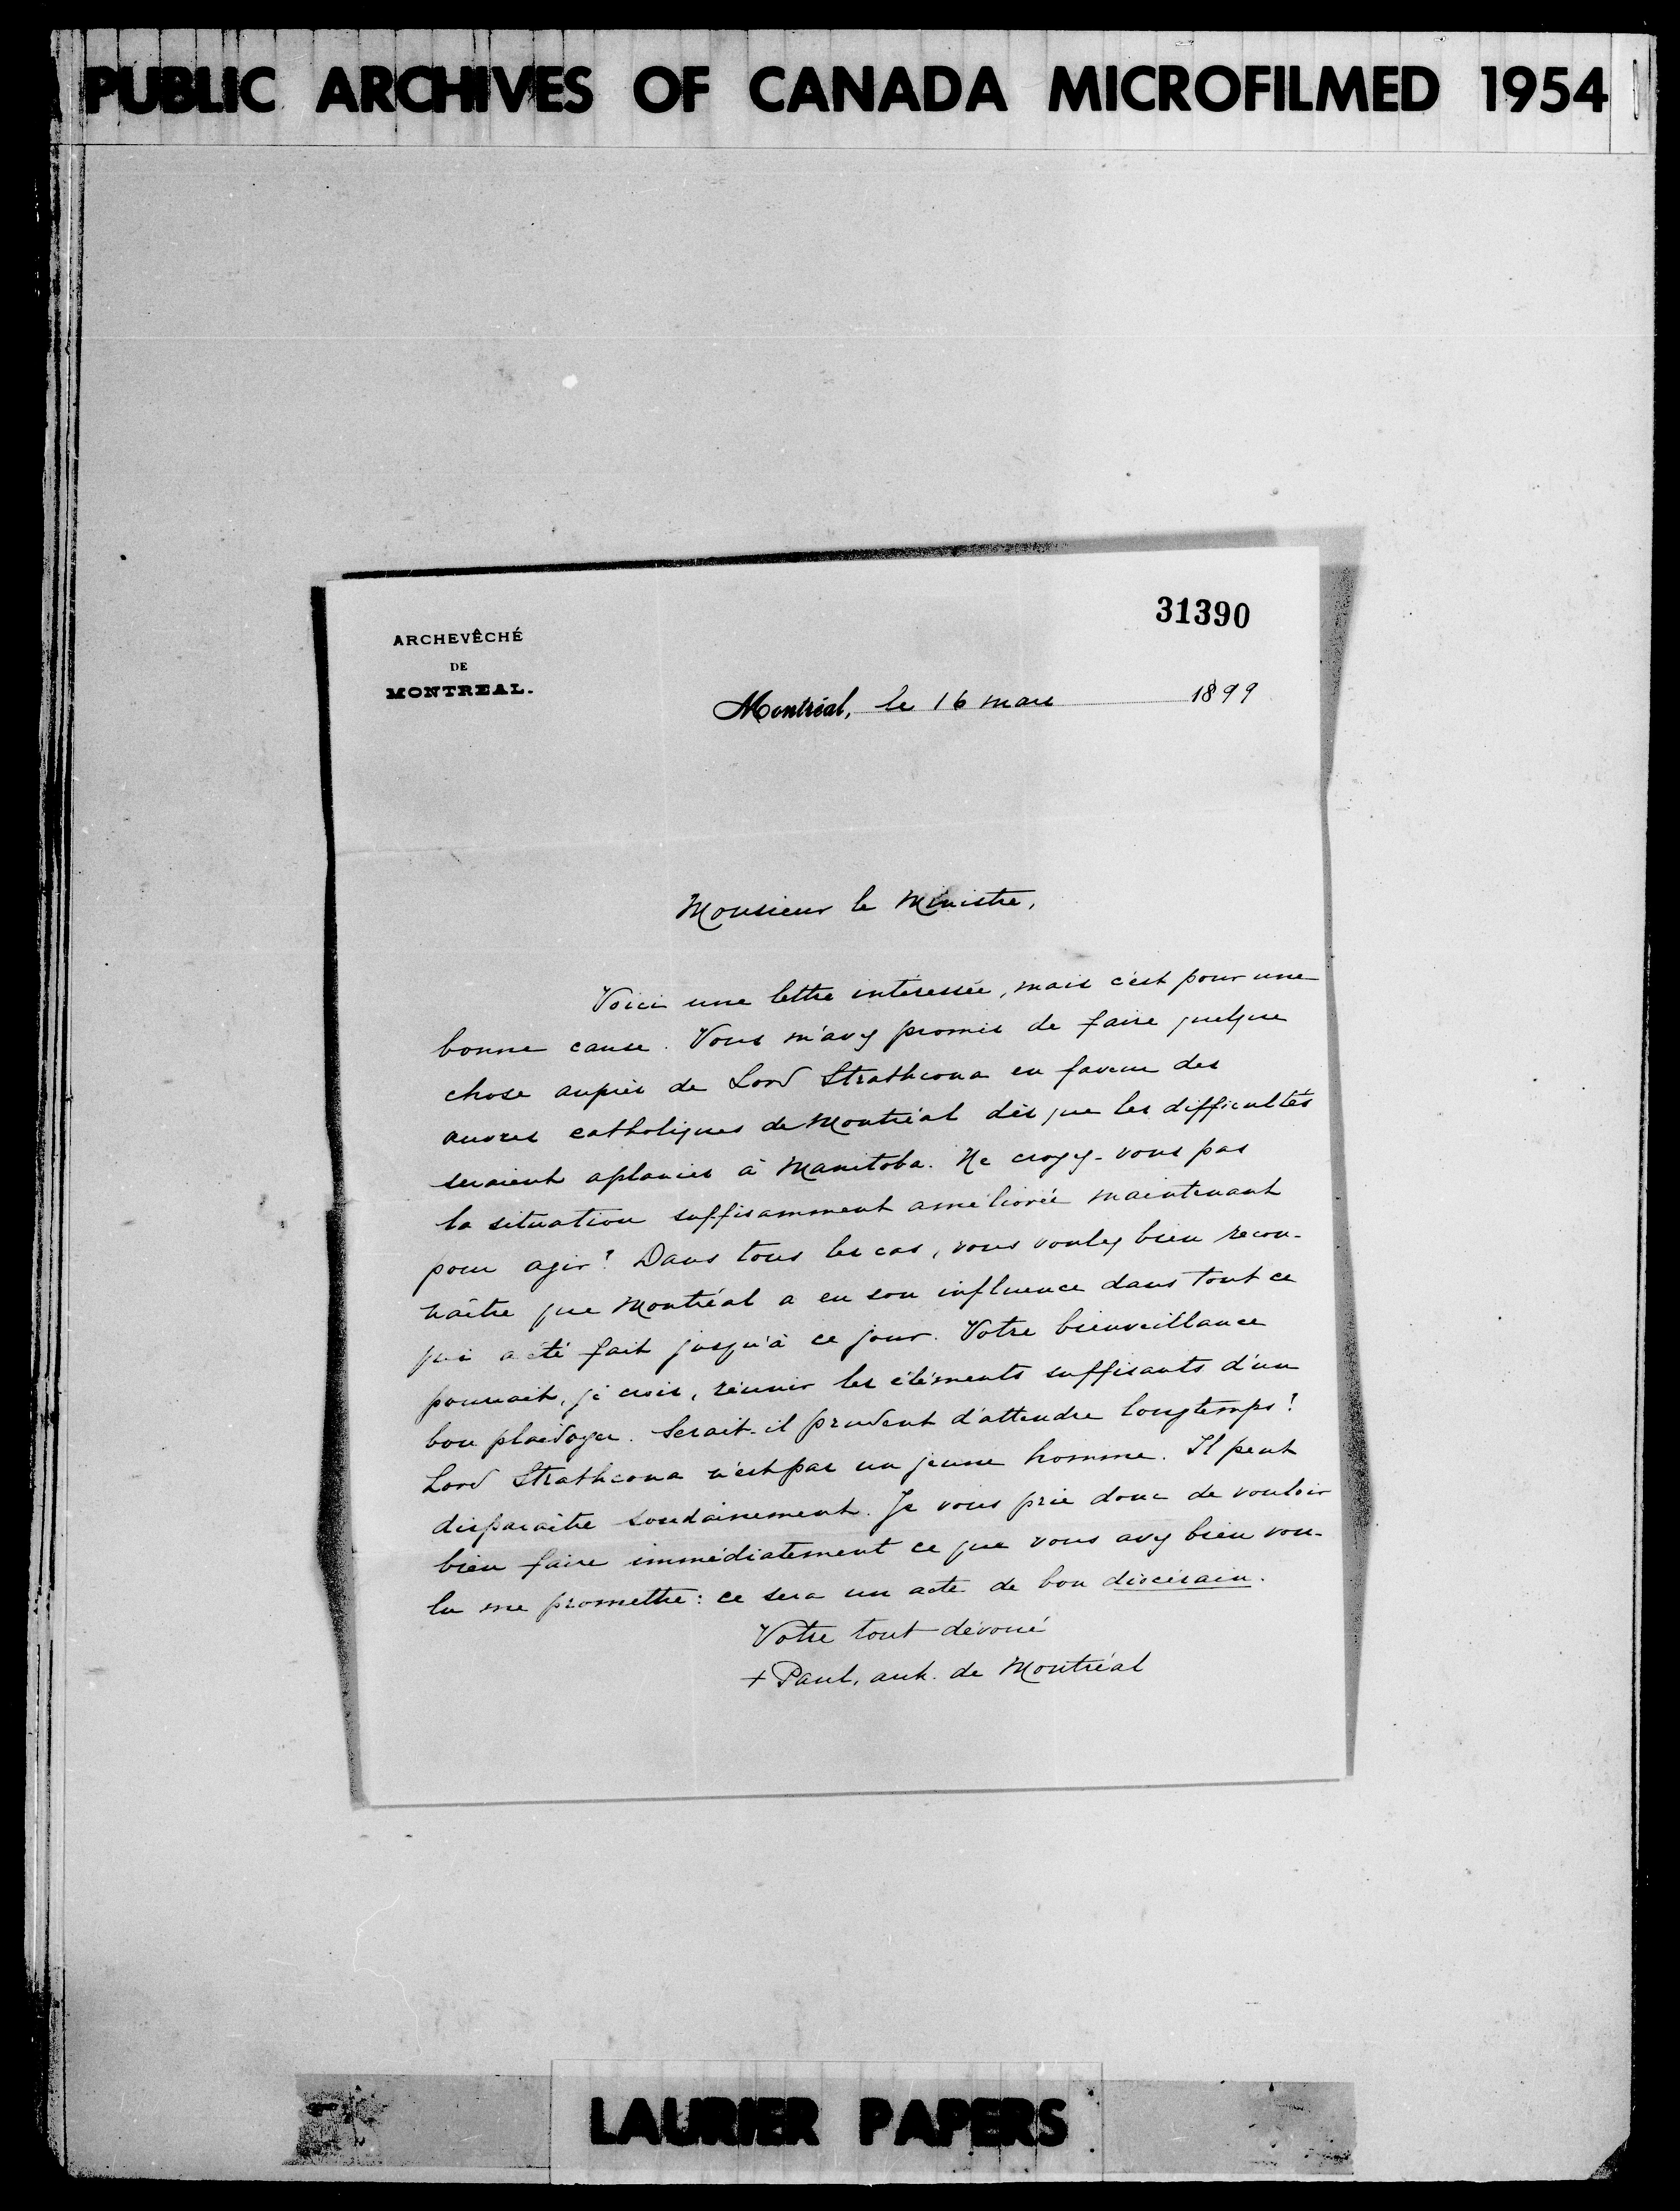 PUBLIC ARCHIVES OF CANADA MICROFILMED 1954
31390
ARCHEVÊCHÉ
DE
MONTREAL.
Montréal, le 16 mars 1899
Monsieur le Ministre,
Voici une lettre intéressée, mais c'est pour une
bonne cause. Vous m'avez promis de faire quelque
chose auprès de Lord Strathcona en faveur des
œuvres catholiques de Montréal dès que les difficultés
seraient aplanies à Manitoba. Ne croyez-vous pas
la situation suffisamment améliorée maintenant
pour agir? Dans tous les cas, vous voulez bien recon-
naître que Montréal a eu son influence dans tout ce
qui a été fait jusqu'à ce jour. Votre bienveillance
pourrait, je crois, réunir les éléments suffisants d'un
bon plaidoyer. Serait-il prudent d'attendre longtemps?
Lord Strathcona n'est pas un jeune homme. Il peut
disparaître soudainement. Je vous prie donc de vouloir
bien faire immédiatement ce que vous avez bien vou-
lu me promettre: ce sera un acte de bon diocésain.
Votre tout dévoué
+ Paul, arch. de Montréal
LAURIER PAPERS